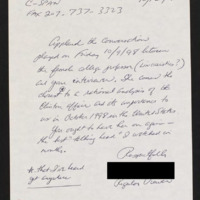 C-Span
FAX 202-737-3323
Applaud the conversation
played on Friday 10/9/98 between
the female college professor (
and your interviewer. She came the
to a rational analysis of the
Clinton affair and its importance to
us in October 1998 in the United States
You ought to have her on again -
the best "talking head" I watched in
months.
* that I've heard
yet anywhere